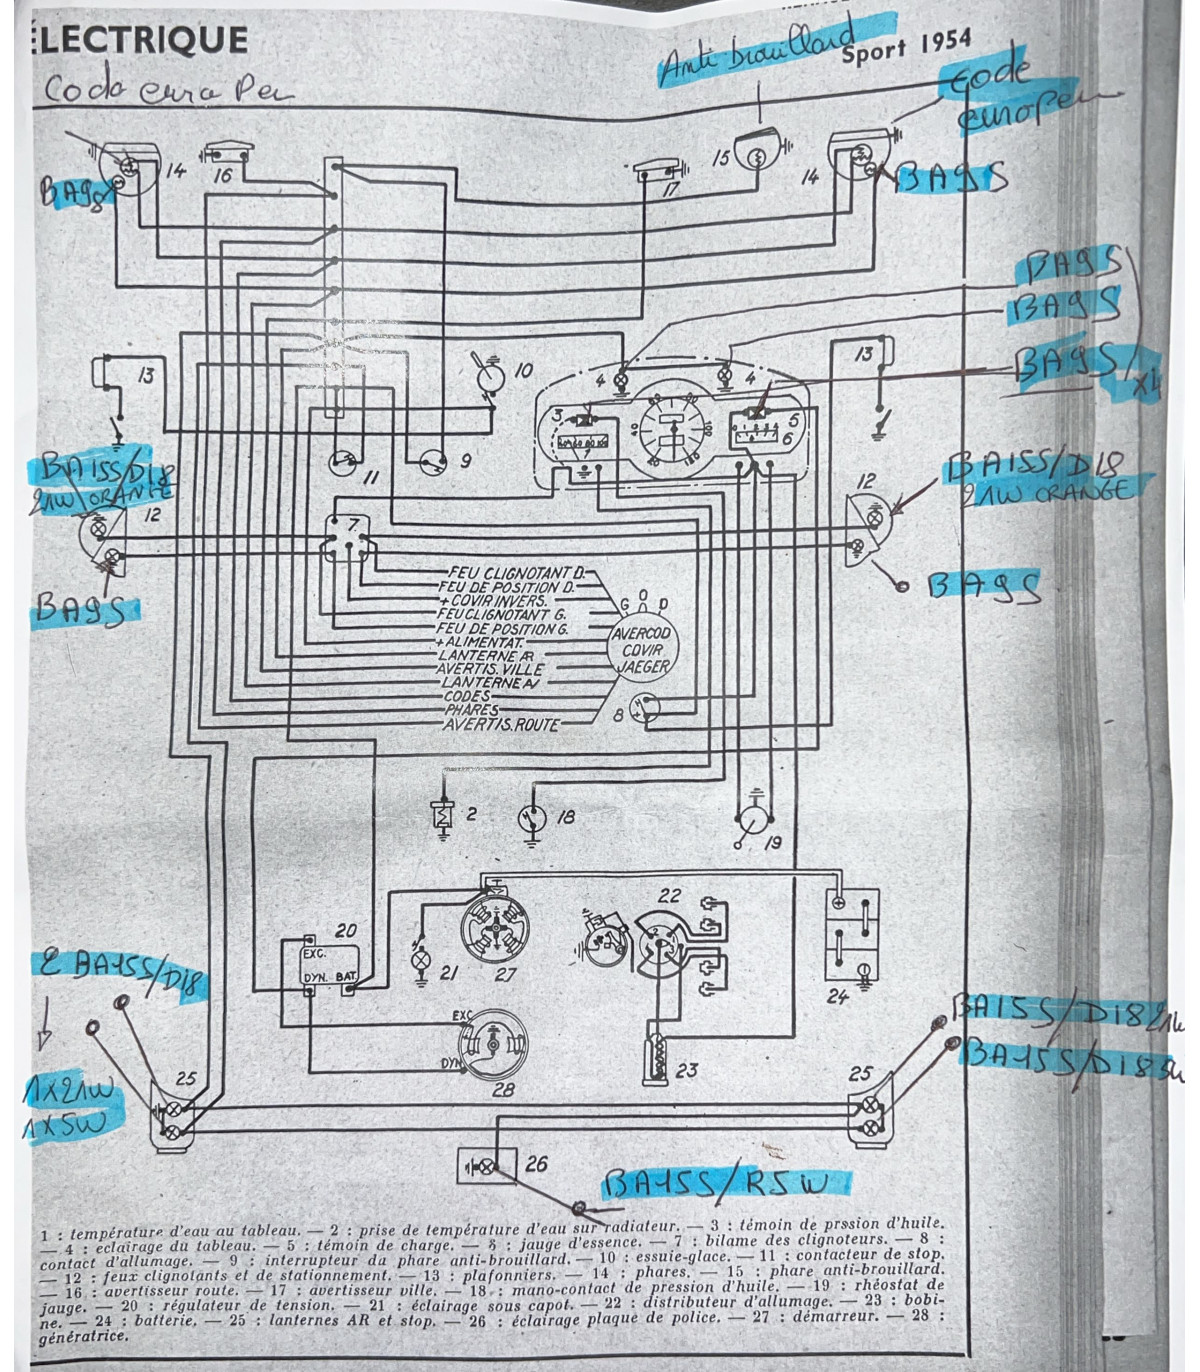 ÉLECTRIQUE
Anti brouillard
Sport 1954
Code
europeen
14
16
15
17
14
BA9S
BA9S
BA9S
BA9S
BA9S
X4
13
10
13
4
4
3
5
6
1
11
9
BA15S/D18
21W ORANGE
12
7
12
BA15S/D18
21W ORANGE
BA9S
BA9S
FEU CLIGNOTANT D.
FEU DE POSITION D.
+ COVIR INVERS.
FEU CLIGNOTANT G.
FEU DE POSITION G.
+ ALIMENTAT.
LANTERNE AR
AVERTIS. VILLE
LANTERNE AV
CODES
PHARES
AVERTIS. ROUTE
G O D
AVERCOD
COVIR
JAEGER
8
2
18
19
20
EXC.
DYN. BAT.
21
27
22
24
EXC
DYN
28
23
2 BA15S/D18
1X21W
1X5W
25
25
BA15S/D18 21W
BA15S/D18 5W
26
BA15S/R5W
1 : température d'eau au tableau. — 2 : prise de température d'eau sur radiateur. — 3 : témoin de prssion d'huile.
— 4 : eclairage du tableau. — 5 : témoin de charge. — 6 : jauge d'essence. — 7 : bilame des clignoteurs. — 8 :
contact d'allumage. — 9 : interrupteur du phare anti-brouillard. — 10 : essuie-glace. — 11 : contacteur de stop.
— 12 : feux clignotants et de stationnement. — 13 : plafonniers. — 14 : phares. — 15 : phare anti-brouillard.
— 16 : avertisseur route. — 17 : avertisseur ville. — 18 : mano-contact de pression d'huile. — 19 : rhéostat de
jauge. — 20 : régulateur de tension. — 21 : éclairage sous capot. — 22 : distributeur d'allumage. — 23 : bobi-
ne. — 24 : batterie. — 25 : lanternes AR et stop. — 26 : éclairage plaque de police. — 27 : démarreur. — 28 :
génératrice.